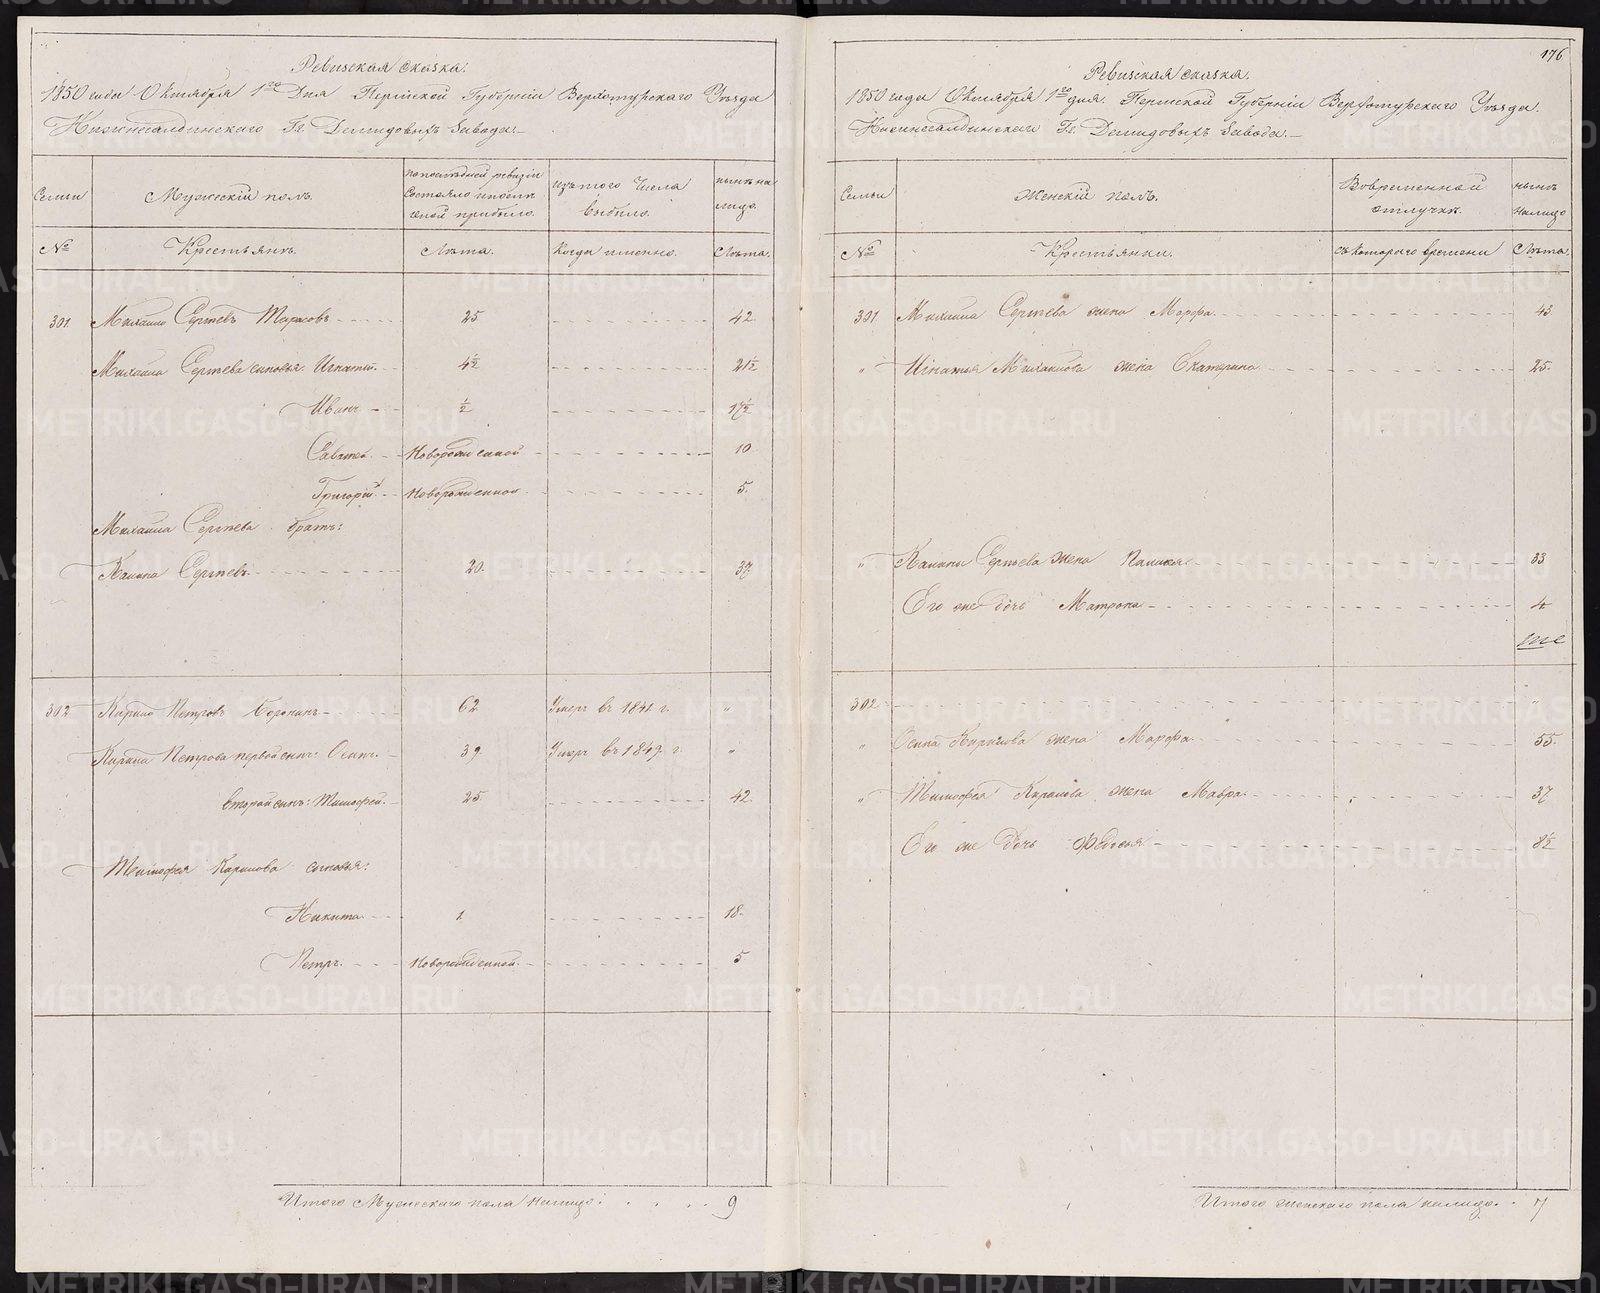 Ревизская сказка.
1850 года Октября 1го дня Пермской Губернiи Верхотурскаго Уѣзда
Нижнесалдинскаго Гг. Демидовыхъ Завода.
Семьи
Мужескiй полъ.
По последней ревизiи состояло и после оной прибыло.
Изъ того числа выбыло.
Нынѣ на лицо.
№
Крестьянъ.
Лѣта.
Когда именно.
Лѣта.
301. Михаило Сергѣевъ Тарасовъ 25 42
Михаила Сергѣева сыновья: Игнатiй. 4½ 21½
Иванъ ½ 17½
Саватей. Новорожденной 10.
Григорiй. Новорожденной 5.
Михаила Сергѣева братъ:
Калина Сергѣевъ 20. 37.
302 Кирило Петровъ 62 Умеръ въ 1841 г. "
Кирила Петрова первой сынъ: Осипъ. 39 Умеръ въ 1849 г. "
Второй сынъ: Тимофей. 25. 42.
Тимофея Кирилова сыновья:
Никита 1. 18.
Петръ. Новорожденной. 5
Итого Мужескаго пола на лицо. 9
176
Ревизская сказка.
1850 года Октября 1го дня. Пермской Губернiи Верхотурскаго Уѣзда.
Нижнесалдинскаго Гг. Демидовыхъ Завода.
Семьи
Женскiй полъ.
Во временной отлучкѣ.
Нынѣ на лицо
№
Крестьянки.
Съ котораго времени
Лѣта
301. Михаила Сергѣева жена Марфа. 43.
" Игнатья Михаилова жена Екатерина 25.
" Калины Сергѣева жена 33
Его же дочь Матрона 4
302 "
" Осипа Кирилова жена Марфа. 55.
" Тимофея Кирилова жена Мавра. 37
Его же дочь Федосья. 8½
Итого женскаго пола на лицо. 7
METRIKI.GASO-URAL.RU